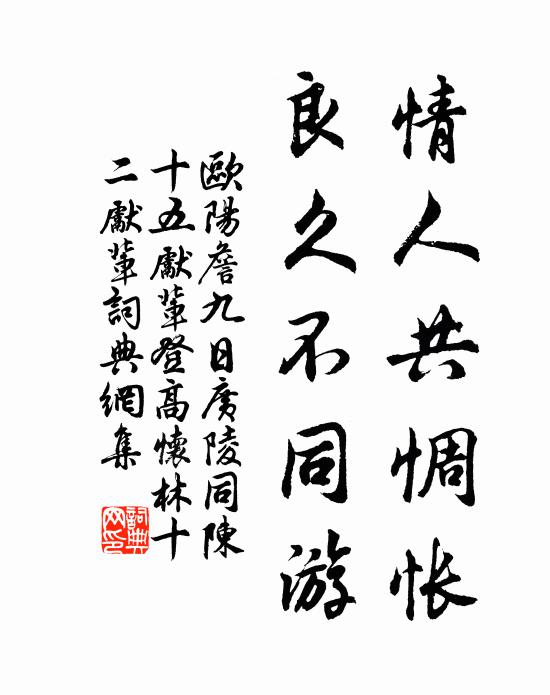 情人共惆怅
良久不同游
歐陽詹九日廣陵同陳
十五獻輩登髙懷林十
二獻輩詞典網集
詞典
网印